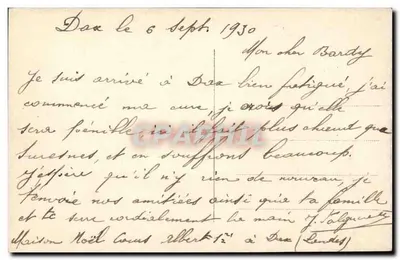 Dax le 6 Sept 1930
Mon cher Bardy
Je suis arrivé à Dax bien fatigué, j'ai
commencé ma cure, je crois qu'elle
sera pénible, ici il fait plus chaud que
Suresnes, et en souffrons beaucoup.
J'espère qu'il n'y rien de nouveau, je
t'envoie nos amitiées ainsi que ta famille
et te serre cordialement la main
Maison Noël Cours Albert 1er à Dax (Landes)